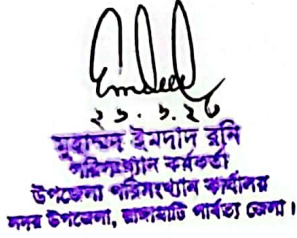 Emdad
২১.১.২৬
মুহাম্মদ ইমদাদ রনি
পরিসংখ্যান কর্মকর্তা
উপজেলা পরিসংখ্যান কার্যালয়
সদর উপজেলা, রাঙ্গামাটি পার্বত্য জেলা।